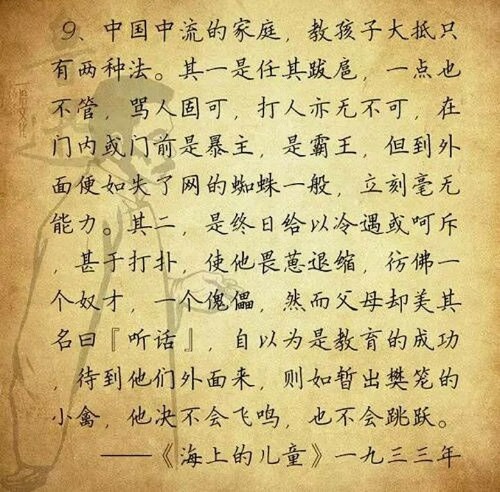 9、中国中流的家庭，教孩子大抵只
有两种法。其一是任其跋扈，一点也
不管，骂人固可，打人亦无不可，在
门内或门前是暴主，是霸王，但到外
面便如失了网的蜘蛛一般，立刻毫无
能力。其二，是终日给以冷遇或呵斥
，甚于打扑，使他畏葸退缩，彷佛一
个奴才，一个傀儡，然而父母却美其
名曰『听话』，自以为是教育的成功
，待到他们外面来，则如暂出樊笼的
小禽，他决不会飞鸣，也不会跳跃。
——《海上的儿童》一九三三年